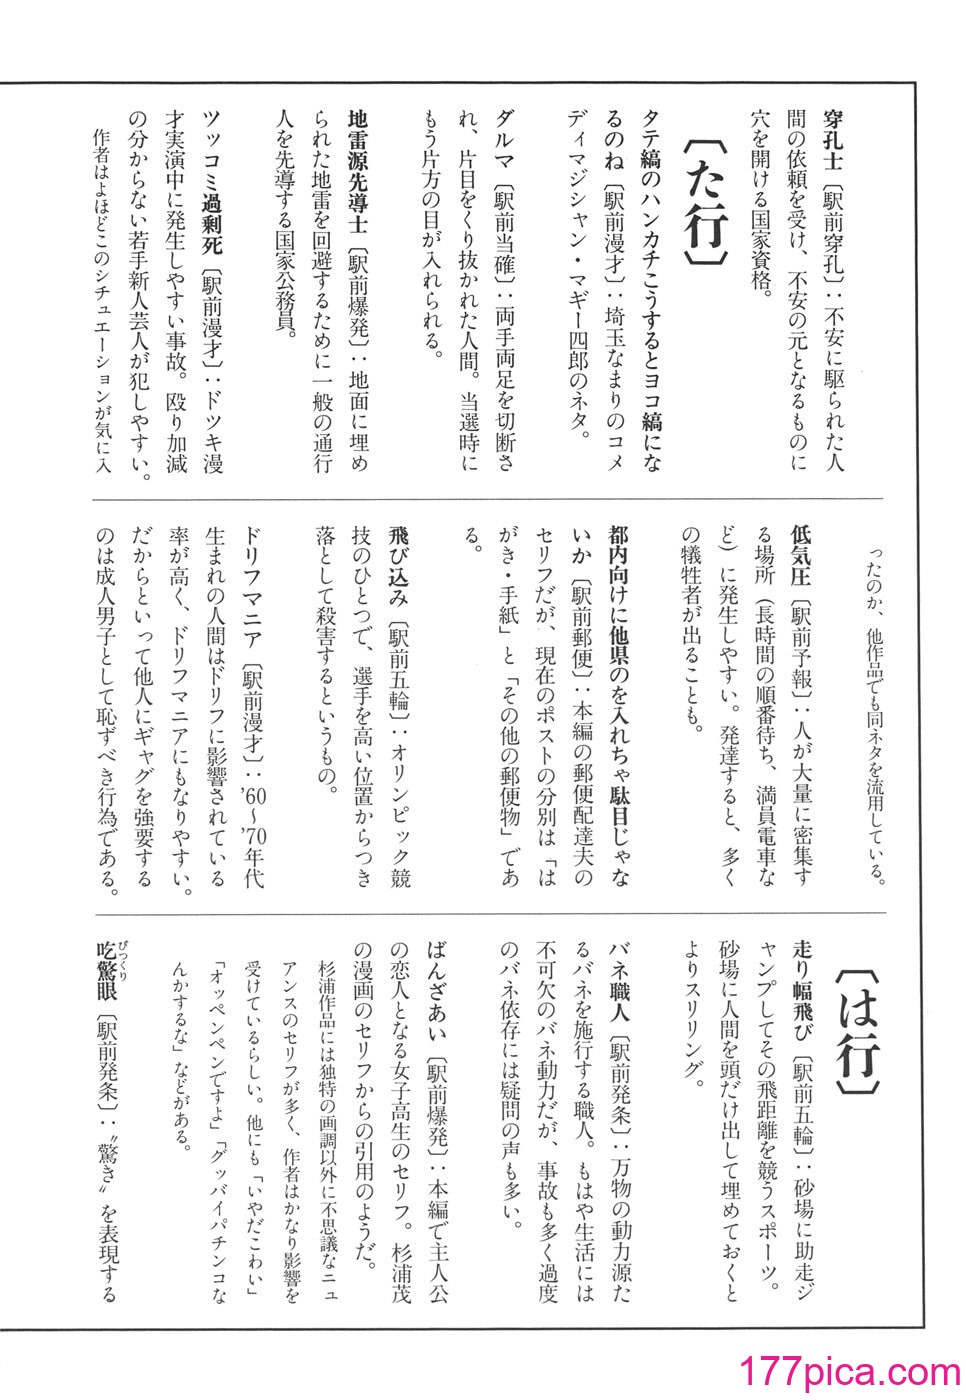 穿孔士〔駅前穿孔〕：不安に駆られた人
間の依頼を受け、不安の元となるものに
穴を開ける国家資格。
〔た行〕
タテ縞のハンカチこうするとヨコ縞にな
るのね〔駅前漫才〕：埼玉なまりのコメ
ディマジシャン・マギー四郎のネタ。
ダルマ〔駅前当確〕：両手両足を切断さ
れ、片目をくり抜かれた人間。当選時に
もう片方の目が入れられる。
地雷源先導士〔駅前爆発〕：地面に埋め
られた地雷を回避するために一般の通行
人を先導する国家公務員。
ツッコミ過剰死〔駅前漫才〕：ドツキ漫
才実演中に発生しやすい事故。殴り加減
の分からない若手新人芸人が犯しやすい。
作者はよほどこのシチュエーションが気に入
ったのか、他作品でも同ネタを流用している。
低気圧〔駅前予報〕：人が大量に密集す
る場所（長時間の順番待ち、満員電車な
ど）に発生しやすい。発達すると、多く
の犠牲者が出ることも。
都内向けに他県のを入れちゃ駄目じゃな
いか〔駅前郵便〕：本編の郵便配達夫の
セリフだが、現在のポストの分別は「は
がき・手紙」と「その他の郵便物」であ
る。
飛び込み〔駅前五輪〕：オリンピック競
技のひとつで、選手を高い位置からつき
落として殺害するというもの。
ドリフマニア〔駅前漫才〕：'60〜'70年代
生まれの人間はドリフに影響されている
率が高く、ドリフマニアにもなりやすい。
だからといって他人にギャグを強要する
のは成人男子として恥ずべき行為である。
〔は行〕
走り幅飛び〔駅前五輪〕：砂場に助走ジ
ャンプしてその飛距離を競うスポーツ。
砂場に人間を頭だけ出して埋めておくと
よりスリリング。
バネ職人〔駅前発条〕：万物の動力源た
るバネを施行する職人。もはや生活には
不可欠のバネ動力だが、事故も多く過度
のバネ依存には疑問の声も多い。
ばんざあい〔駅前爆発〕：本編で主人公
の恋人となる女子高生のセリフ。杉浦茂
の漫画のセリフからの引用のようだ。
杉浦作品には独特の画調以外に不思議なニュ
アンスのセリフが多く、作者はかなり影響を
受けているらしい。他にも「いやだこわい」
「オッペンペンですよ」「グッバイパチンコな
んかするな」などがある。
吃驚眼〔駅前発条〕：〝驚き〟を表現する
びつくり
177pica.com